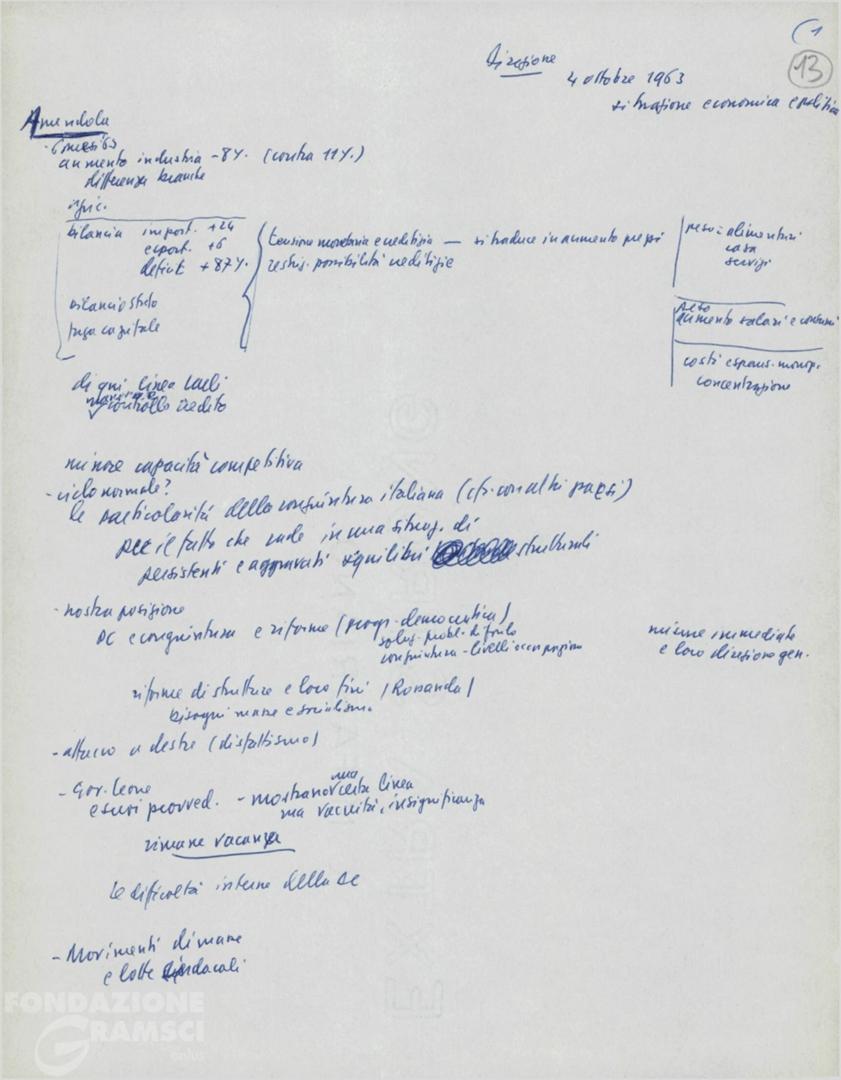 (1
13
Direzione
4 ottobre 1963
situazione economica e politica
Amendola
- 6 mesi 63
aumento industria - 8%. (contro 11%.)
differenza branche
agric.
bilancia import. +24
export. +6
deficit +87%.
bilancio stato
fuga capitale
tensione monetaria e creditizia — si traduce in aumento prezzi
restriz. possibilità creditizie
prezzi alimentari
casa
servizi
peso
aumento salari e consumi
costi espans. monop.
concentrazione
di qui linea Carli
controllo credito
minore capacità competitiva
- ciclo normale?
le particolarità della congiuntura italiana (cfr. con altri paesi)
per il fatto che cade in una situaz. di
persistenti e aggravati squilibri strutturali
- nostra posizione
PC e congiuntura e riforme (progr. democratica)
soluz. probl. di fondo
congiuntura - livelli occupazione
misure immediate
e loro direzione gen.
riforme di strutture e loro fini (Rossanda)
bisogni masse e socialismo
- attacco a destra (disfattismo)
- Gov. Leone
e suoi provved. - mostrano una certa linea
ma vacuità, insignificanza
rimane vacanza
le difficoltà interne della DC
- Movimenti di masse
e lotte sindacali
FONDAZIONE
GRAMSCI
onlus